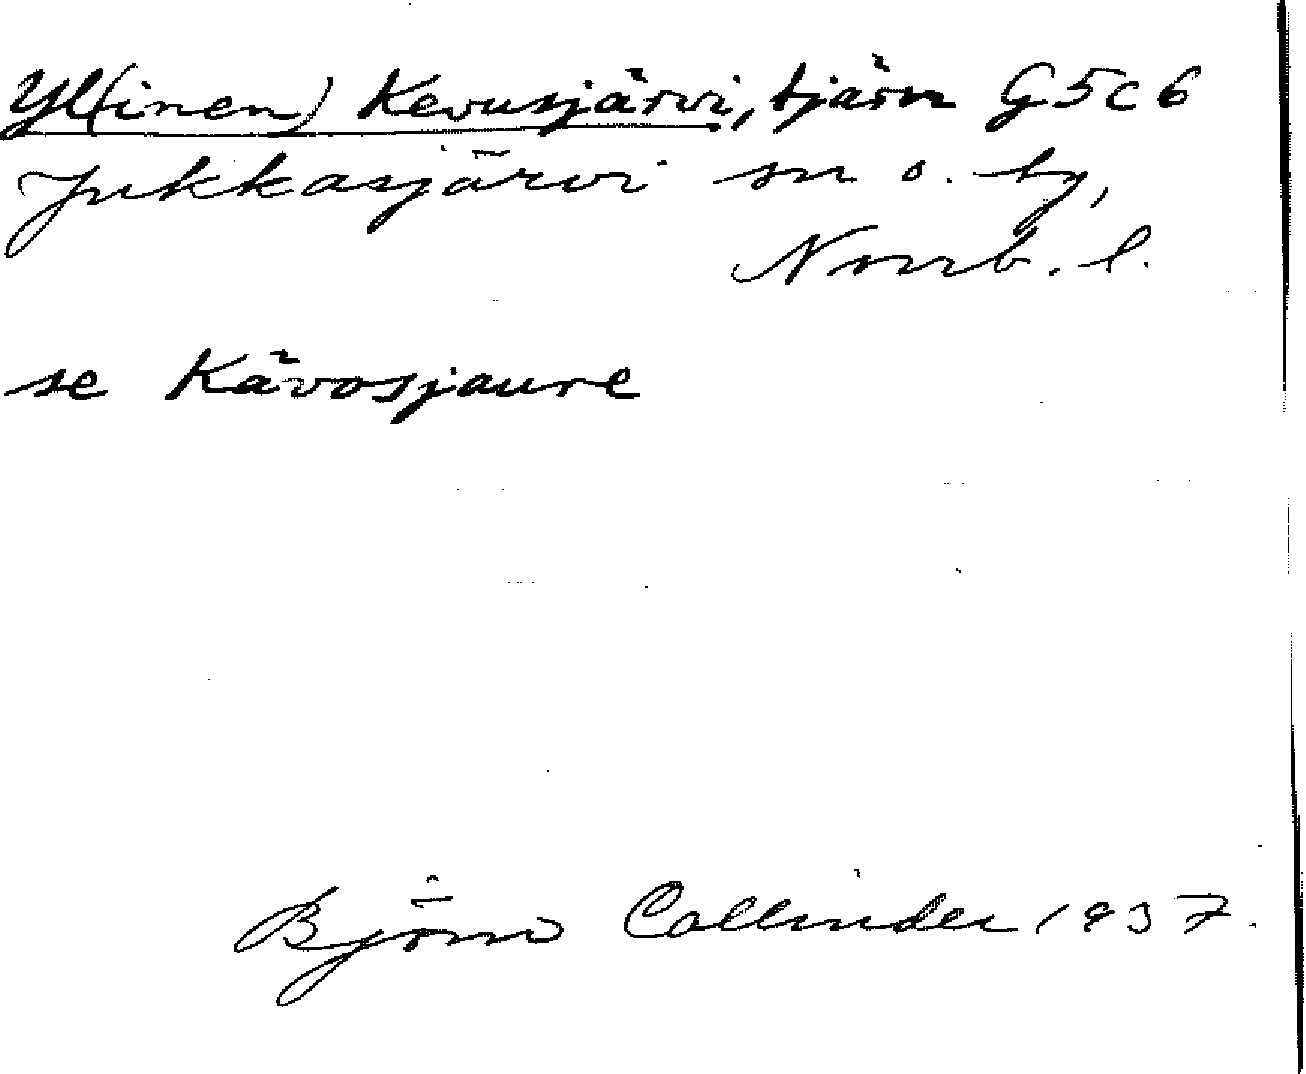 Yl(inen) Kevusjärvi, tjärn G5c6
Jukkasjärvi sn o. by,
Norrb. l.
se Kävosjaure
Björn Collinder 1937.